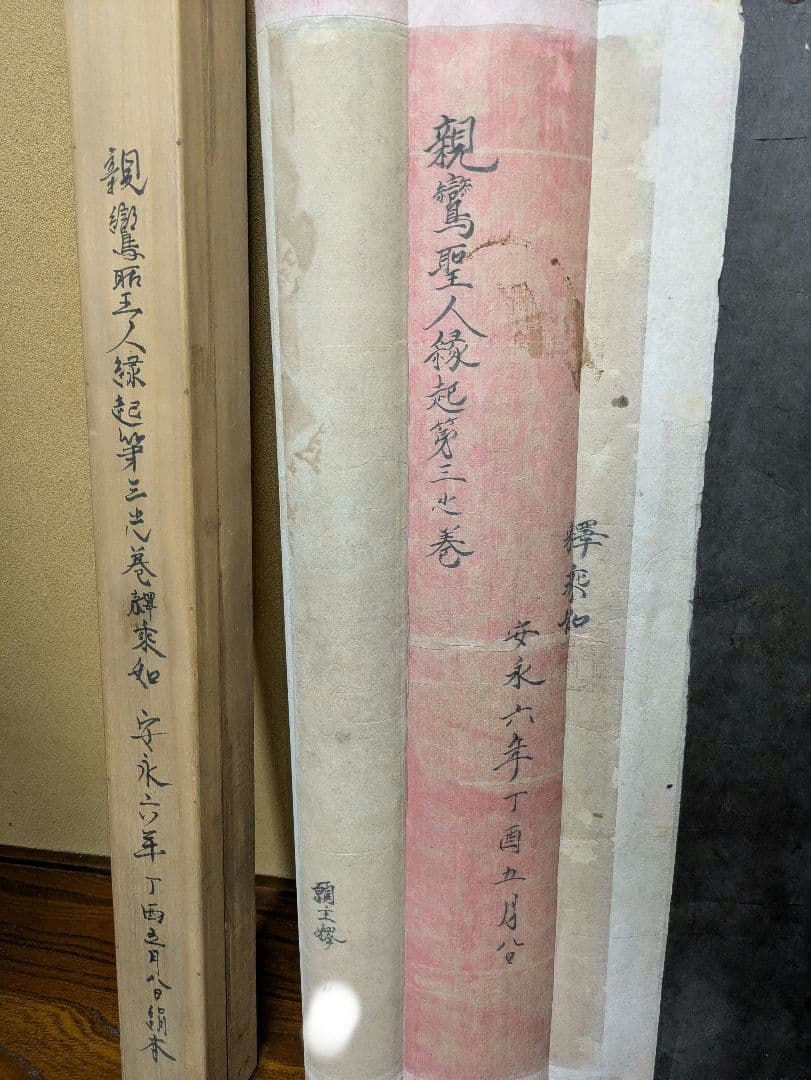 親鸞聖人縁起第三之巻
釋乗如
安永六年丁酉五月八日
願主釋
親鸞聖人縁起第三之巻釋乗如 安永六年丁酉五月八日絹本